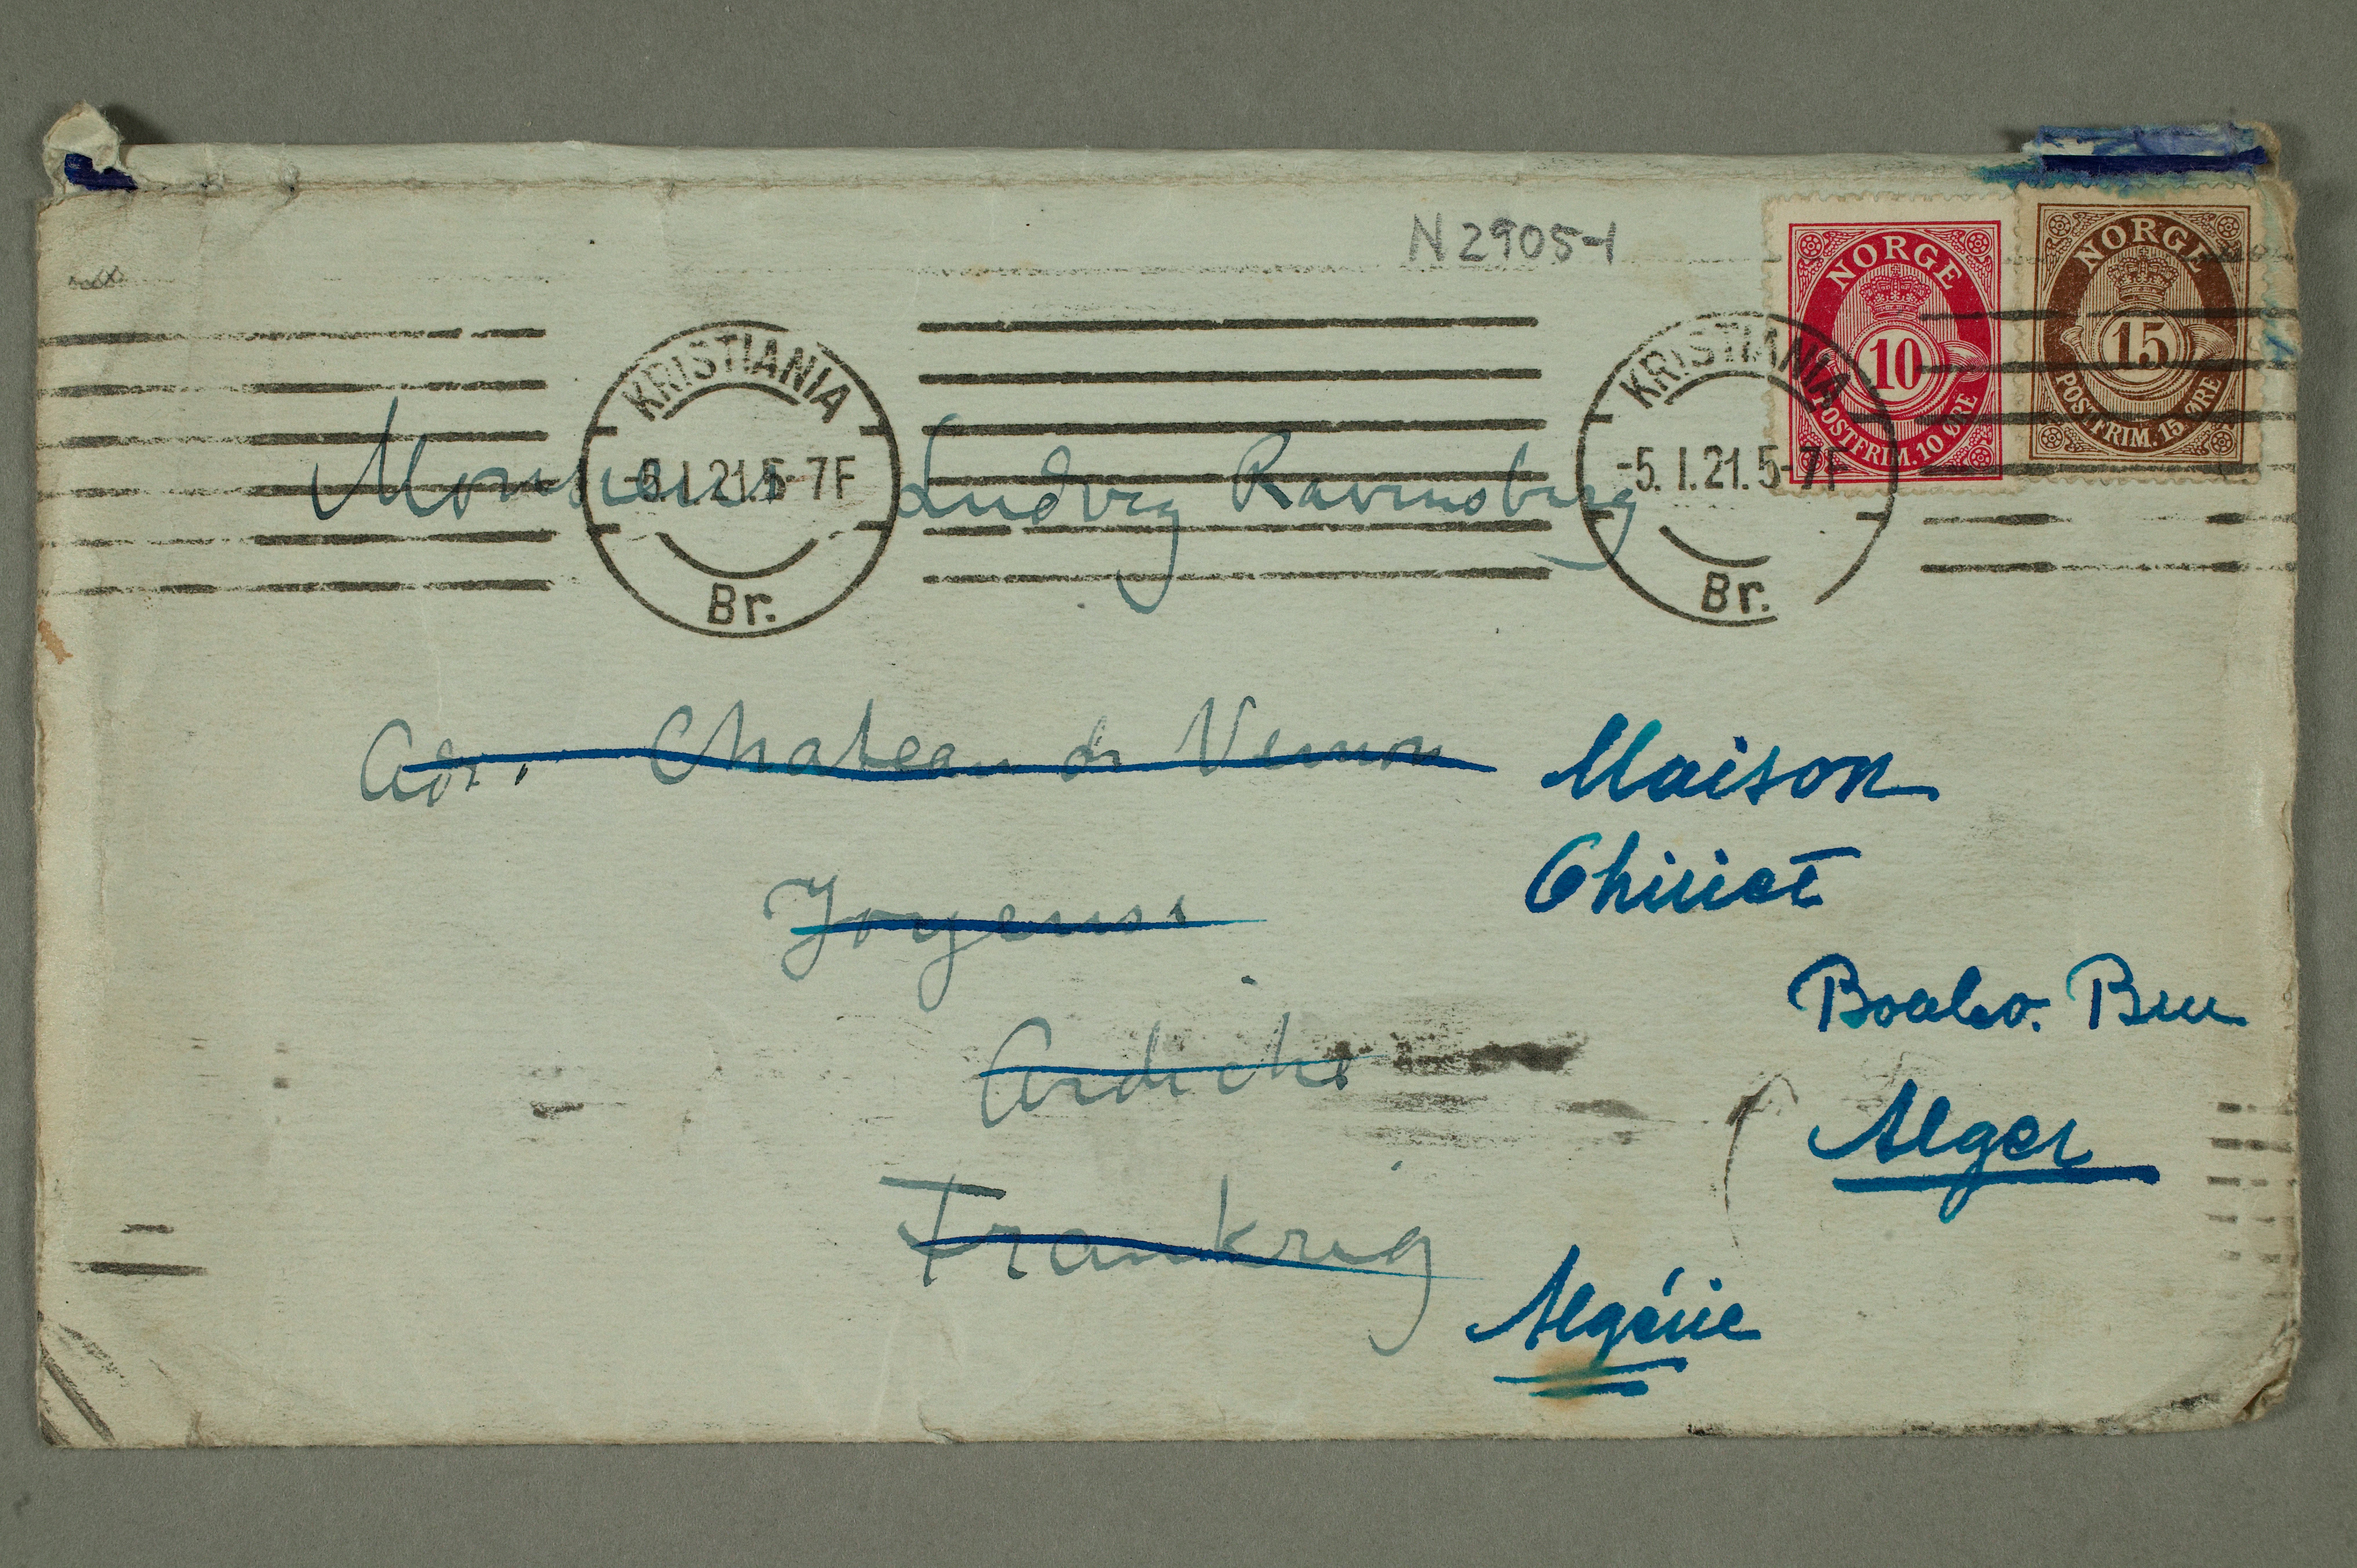 N 2905-1
NORGE
10
POSTFRIM. 10 ØRE
NORGE
15
POSTFRIM. 15 ØRE
KRISTIANIA
-5.1.21.5-7F
Br.
KRISTIANIA
-5.1.21.5-7F
Br.
Monsieur Ludvig Ravensberg
Adr. Chateau de Vernon
Joyeuse
Ardèche
Frankrig
Maison
Boulev. Bru
Alger
Algérie